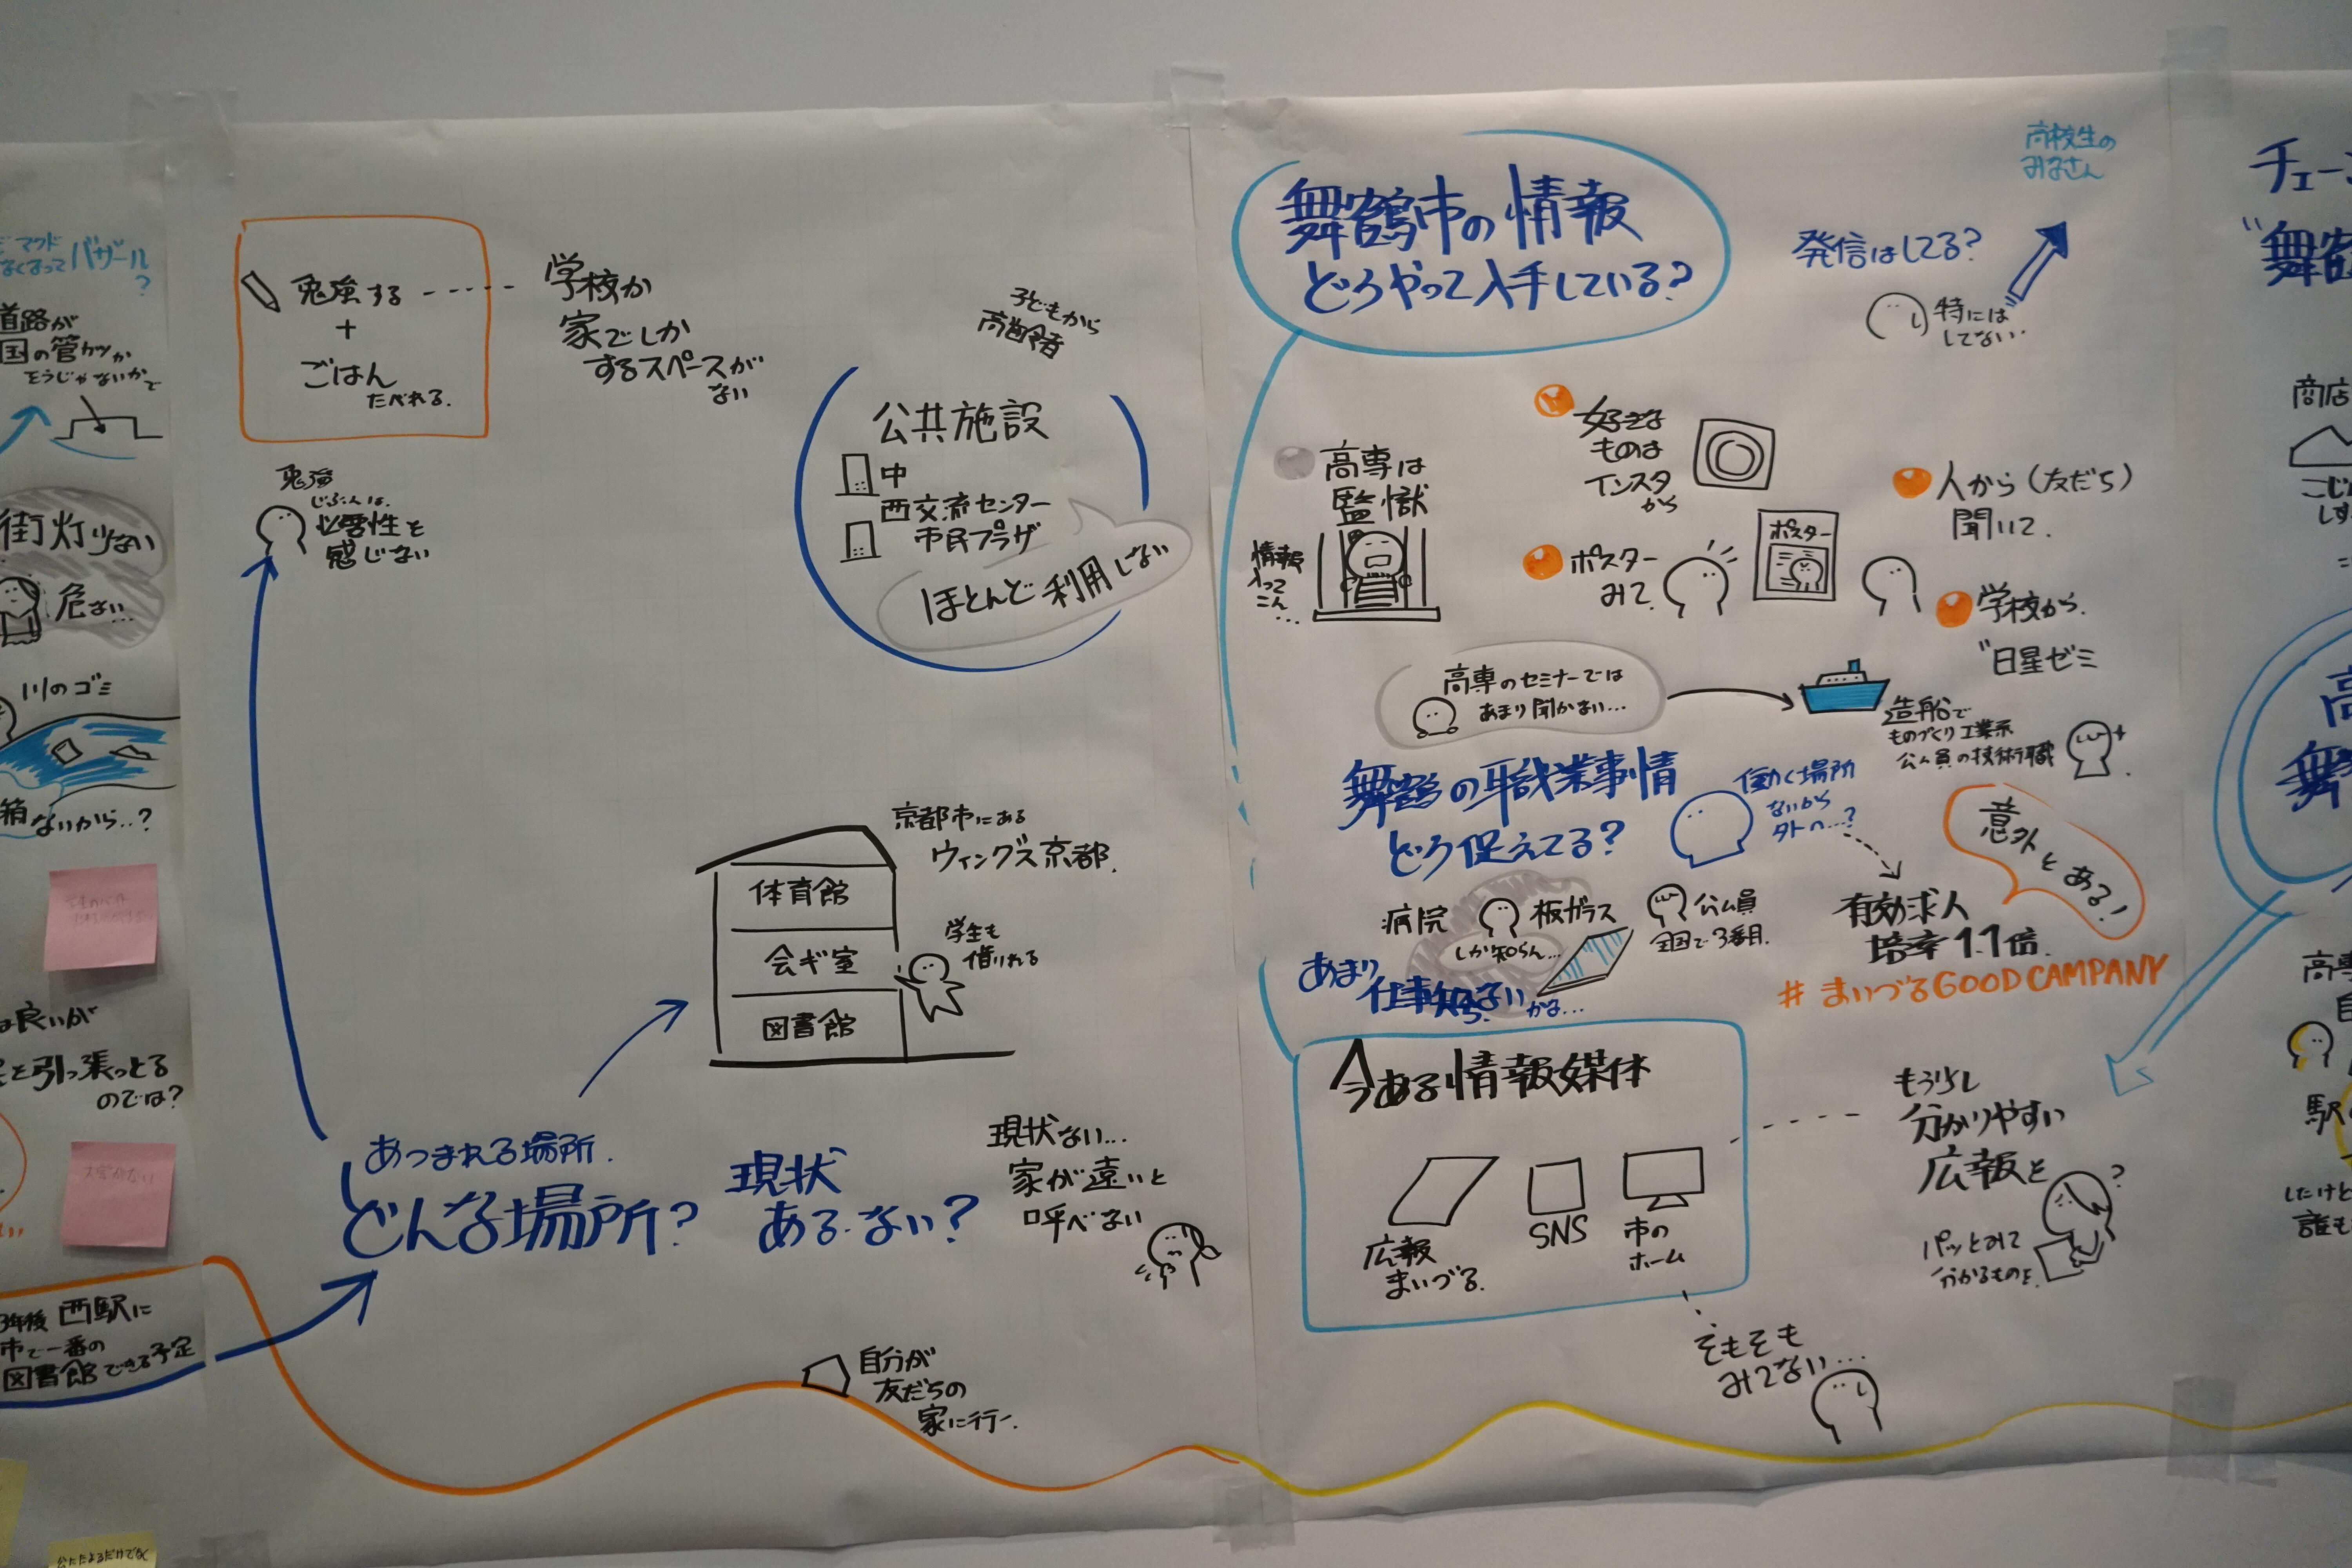 マクド
なくなってバザール
?
道路が
国の管カツか
そうじゃないかで
街灯少ない
危ない…
川のゴミ
箱ないから‥?
は良いが
を引っ張っとる
のでは?
3年後 西駅に
市で一番の
図書館できる予定
勉強する
+
ごはん
たべれる.
学校か
家でしか
するスペースが
ない
勉強
じぶんは.
必要性を
感じない
子どもから
高齢者
公共施設
中
西交流センター
市民プラザ
ほとんど利用しない
京都市にある
ウィングス京都.
体育館
会ギ室
図書館
学生も
借りれる
あつまれる場所.
どんな場所?
現状
ある・ない?
現状ない…
家が遠いと
呼べない
自分が
友だちの
家に行く.
舞鶴市の情報
どうやって入手している?
高校生の
みなさん
発信はしてる?
特には
してない‥
高専は
監獄
情報
入って
こん
…
好きな
ものは
インスタ
から
ポスター
みて.
ポスター
人から(友だち)
聞いて.
学校から.
"日星ゼミ
高専のセミナーでは
あまり聞かない…
造船で
ものづくり工業系
公ム員の技術職
舞鶴の職業事情
どう捉えてる?
働く場所
ないから
外へ…?
意外とある!
有効求人
倍率1.1倍.
#まいづるGOOD CAMPANY
病院
板ガラス
しか知らん…
公ム員
全国で3番目.
あまり
仕事知らないかな…
今ある情報媒体
広報
まいづる.
SNS
市の
ホーム
もう少し
分かりやすい
広報を
?
パッとみて
分かるものを.
そもそも
みてない…
チェーン
"舞鶴
商店
高
舞鶴
高専
駅
したけど
誰も